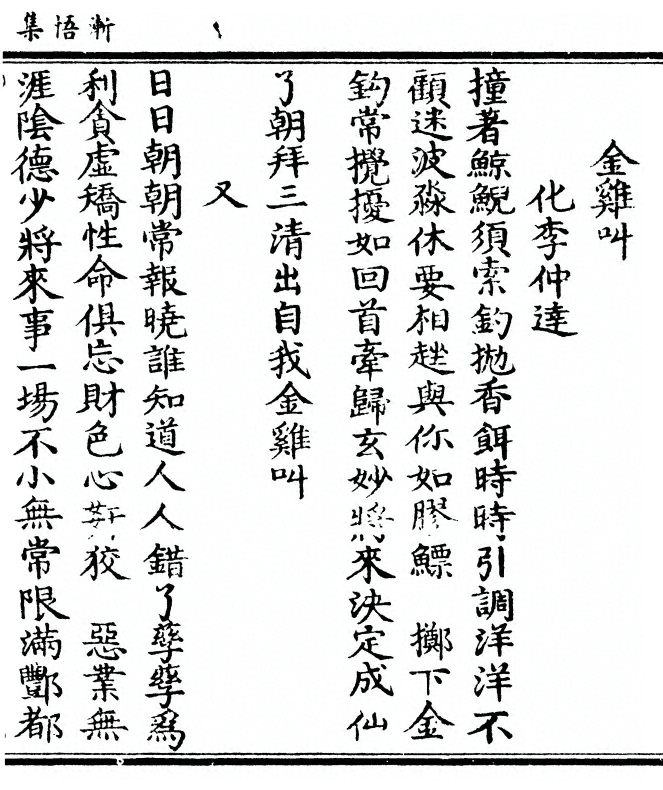 漸悟集
金雞叫
化李仲達
撞著鯨鯢須索釣拋香餌時時引調洋洋不
顧迷波淼休要相趖與你如膠鰾　擲下金
鈎常攪擾如回首牽歸玄妙將來決定成仙
了朝拜三清出自我金雞叫
又
日日朝朝常報曉誰知道人人錯了孽孽爲
利貪虛矯性命俱忘財色心姧狡　惡業無
涯陰德少將來事一場不小無常限滿酆都